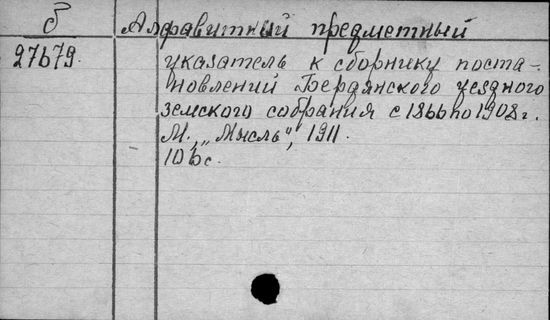 Б
27679.
Алфавитный предметный
указатель к сборнику поста-
новлений Бердянского уездного
земского собрания с 1866 по 1908 г.
М., „Мысль“, 1911.
106 с.